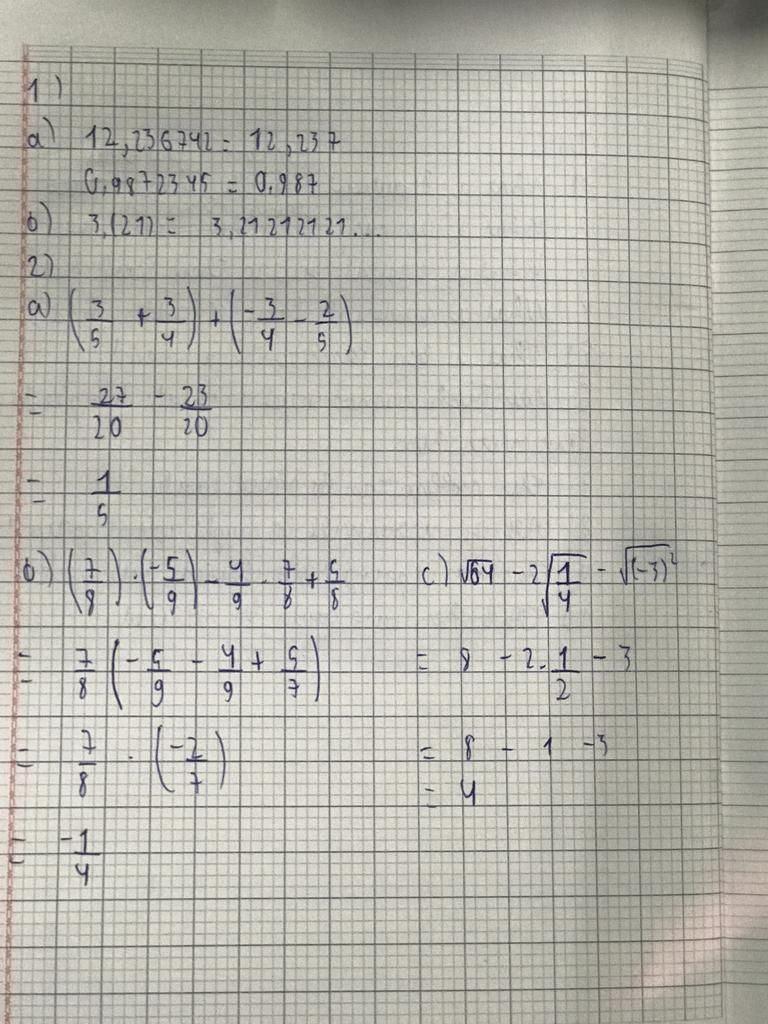 1)
a) 12,236742 = 12,237
0,9872345 = 0,987
b) 3,(21) = 3,21212121...
2)
a) (3/5 + 3/4) + (-3/4 - 2/5)
= 27/20 - 23/20
= 1/5
b) (7/8) . (-5/9) - 4/9 . 7/8 + 5/8
= 7/8 (-5/9 - 4/9 + 5/7)
= 7/8 . (-2/7)
= -1/4
c) √64 - 2√1/4 - √(-3)²
= 8 - 2.1/2 - 3
= 8 - 1 - 3
= 4